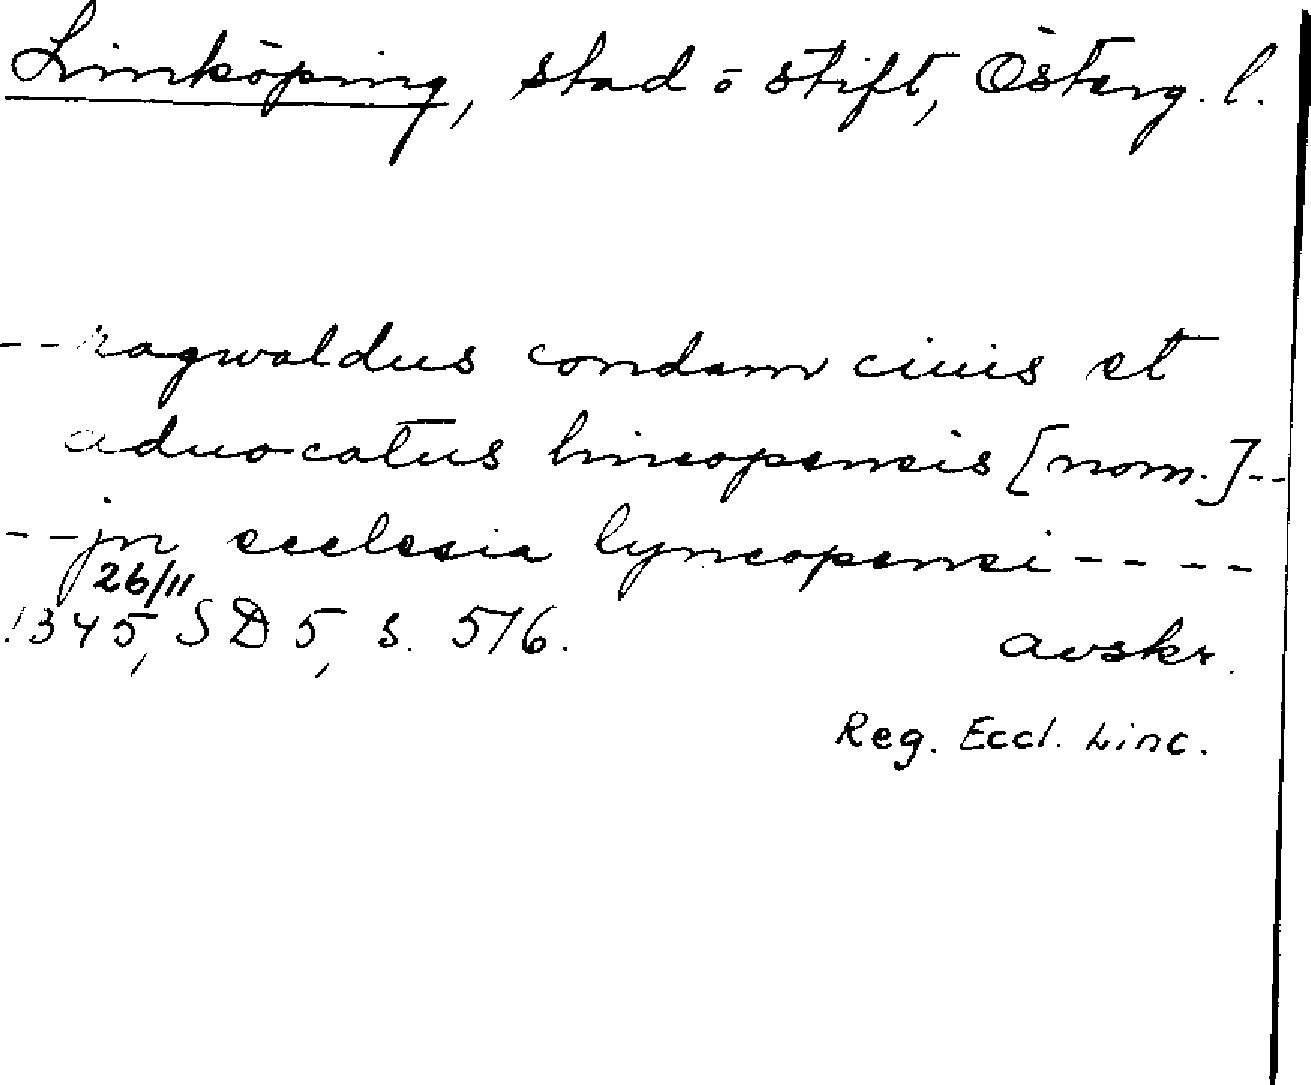 Linköping, stad o stift, Österg. l.
--ragwaldus condam ciuis et
aduocatus lincopensis [nom.]--
--jn ecclesia lyncopensi----
26/11
1345, SD 5, s. 516.
avskr.
Reg. Eccl. Linc.